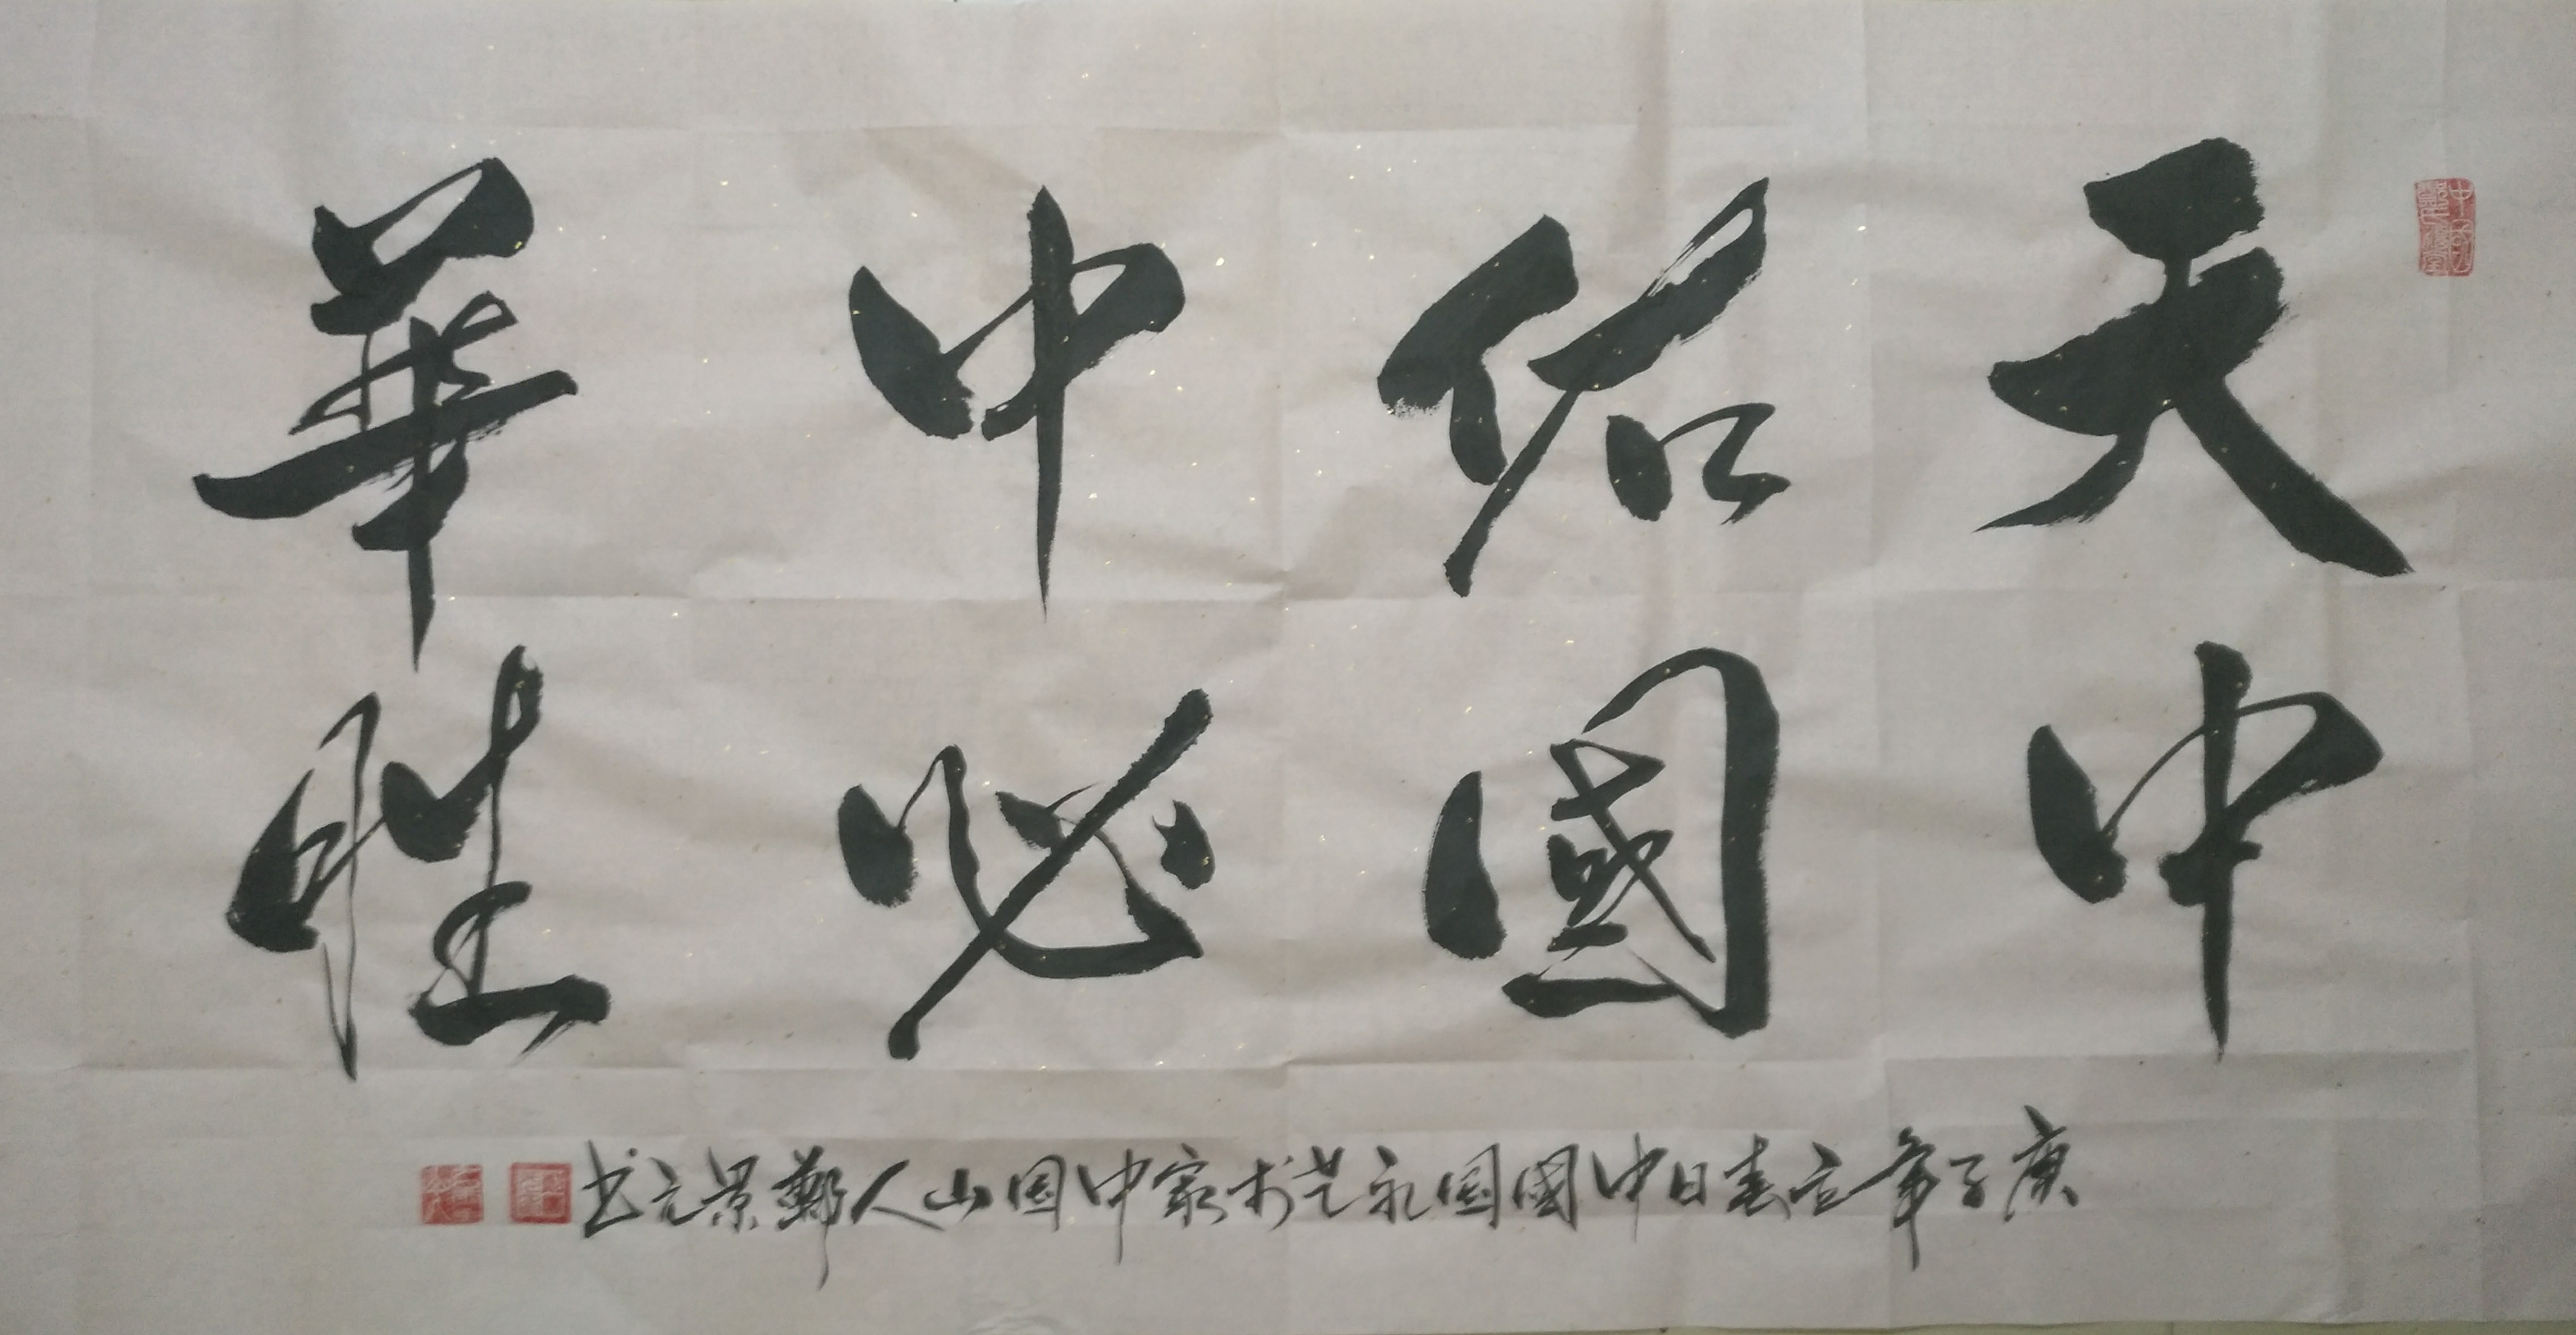 天佑中華
中國必胜
庚子年立春日中國国礼艺术家中国山人鄭景元书